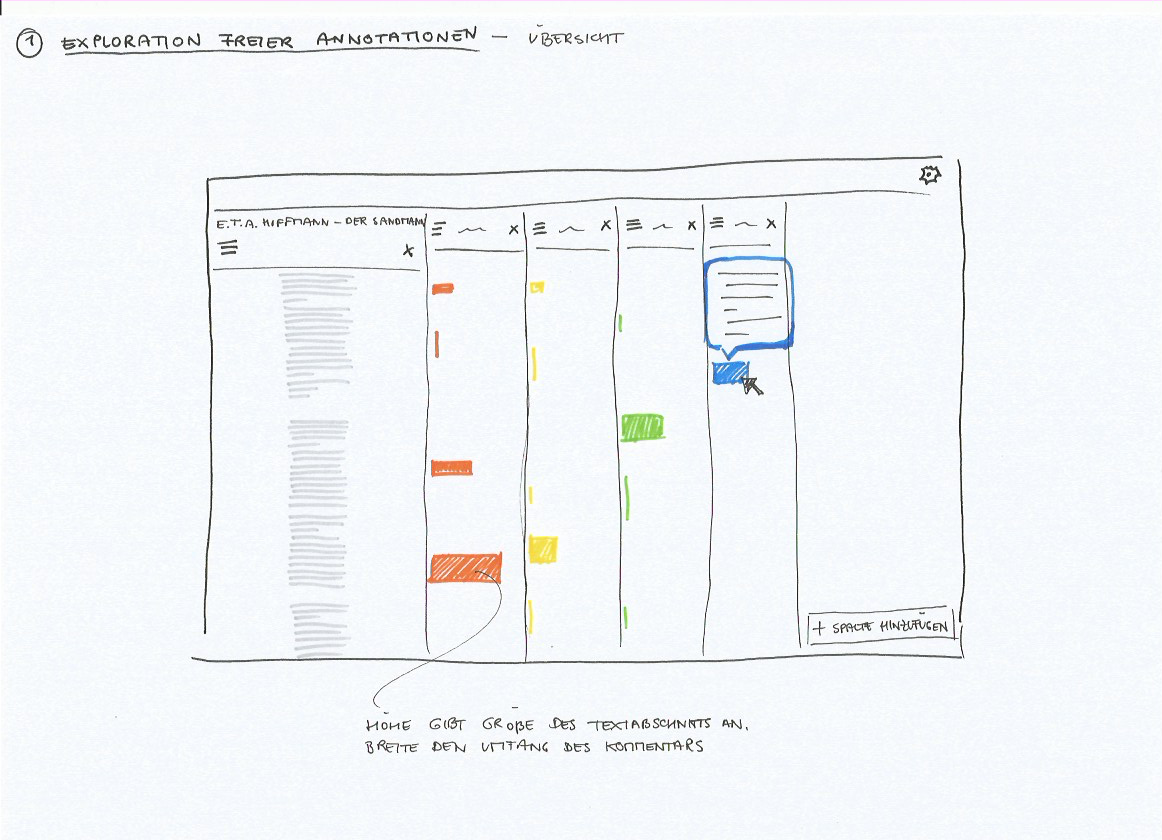 1 EXPLORATION FREIER ANNOTATIONEN — ÜBERSICHT
E.T.A. HOFFMANN – DER SANDMANN
X
X
X
X
X
+ SPALTE HINZUFÜGEN
HÖHE GIBT GRÖßE DES TEXTABSCHNITTS AN,
BREITE DEN UMFANG DES KOMMENTARS